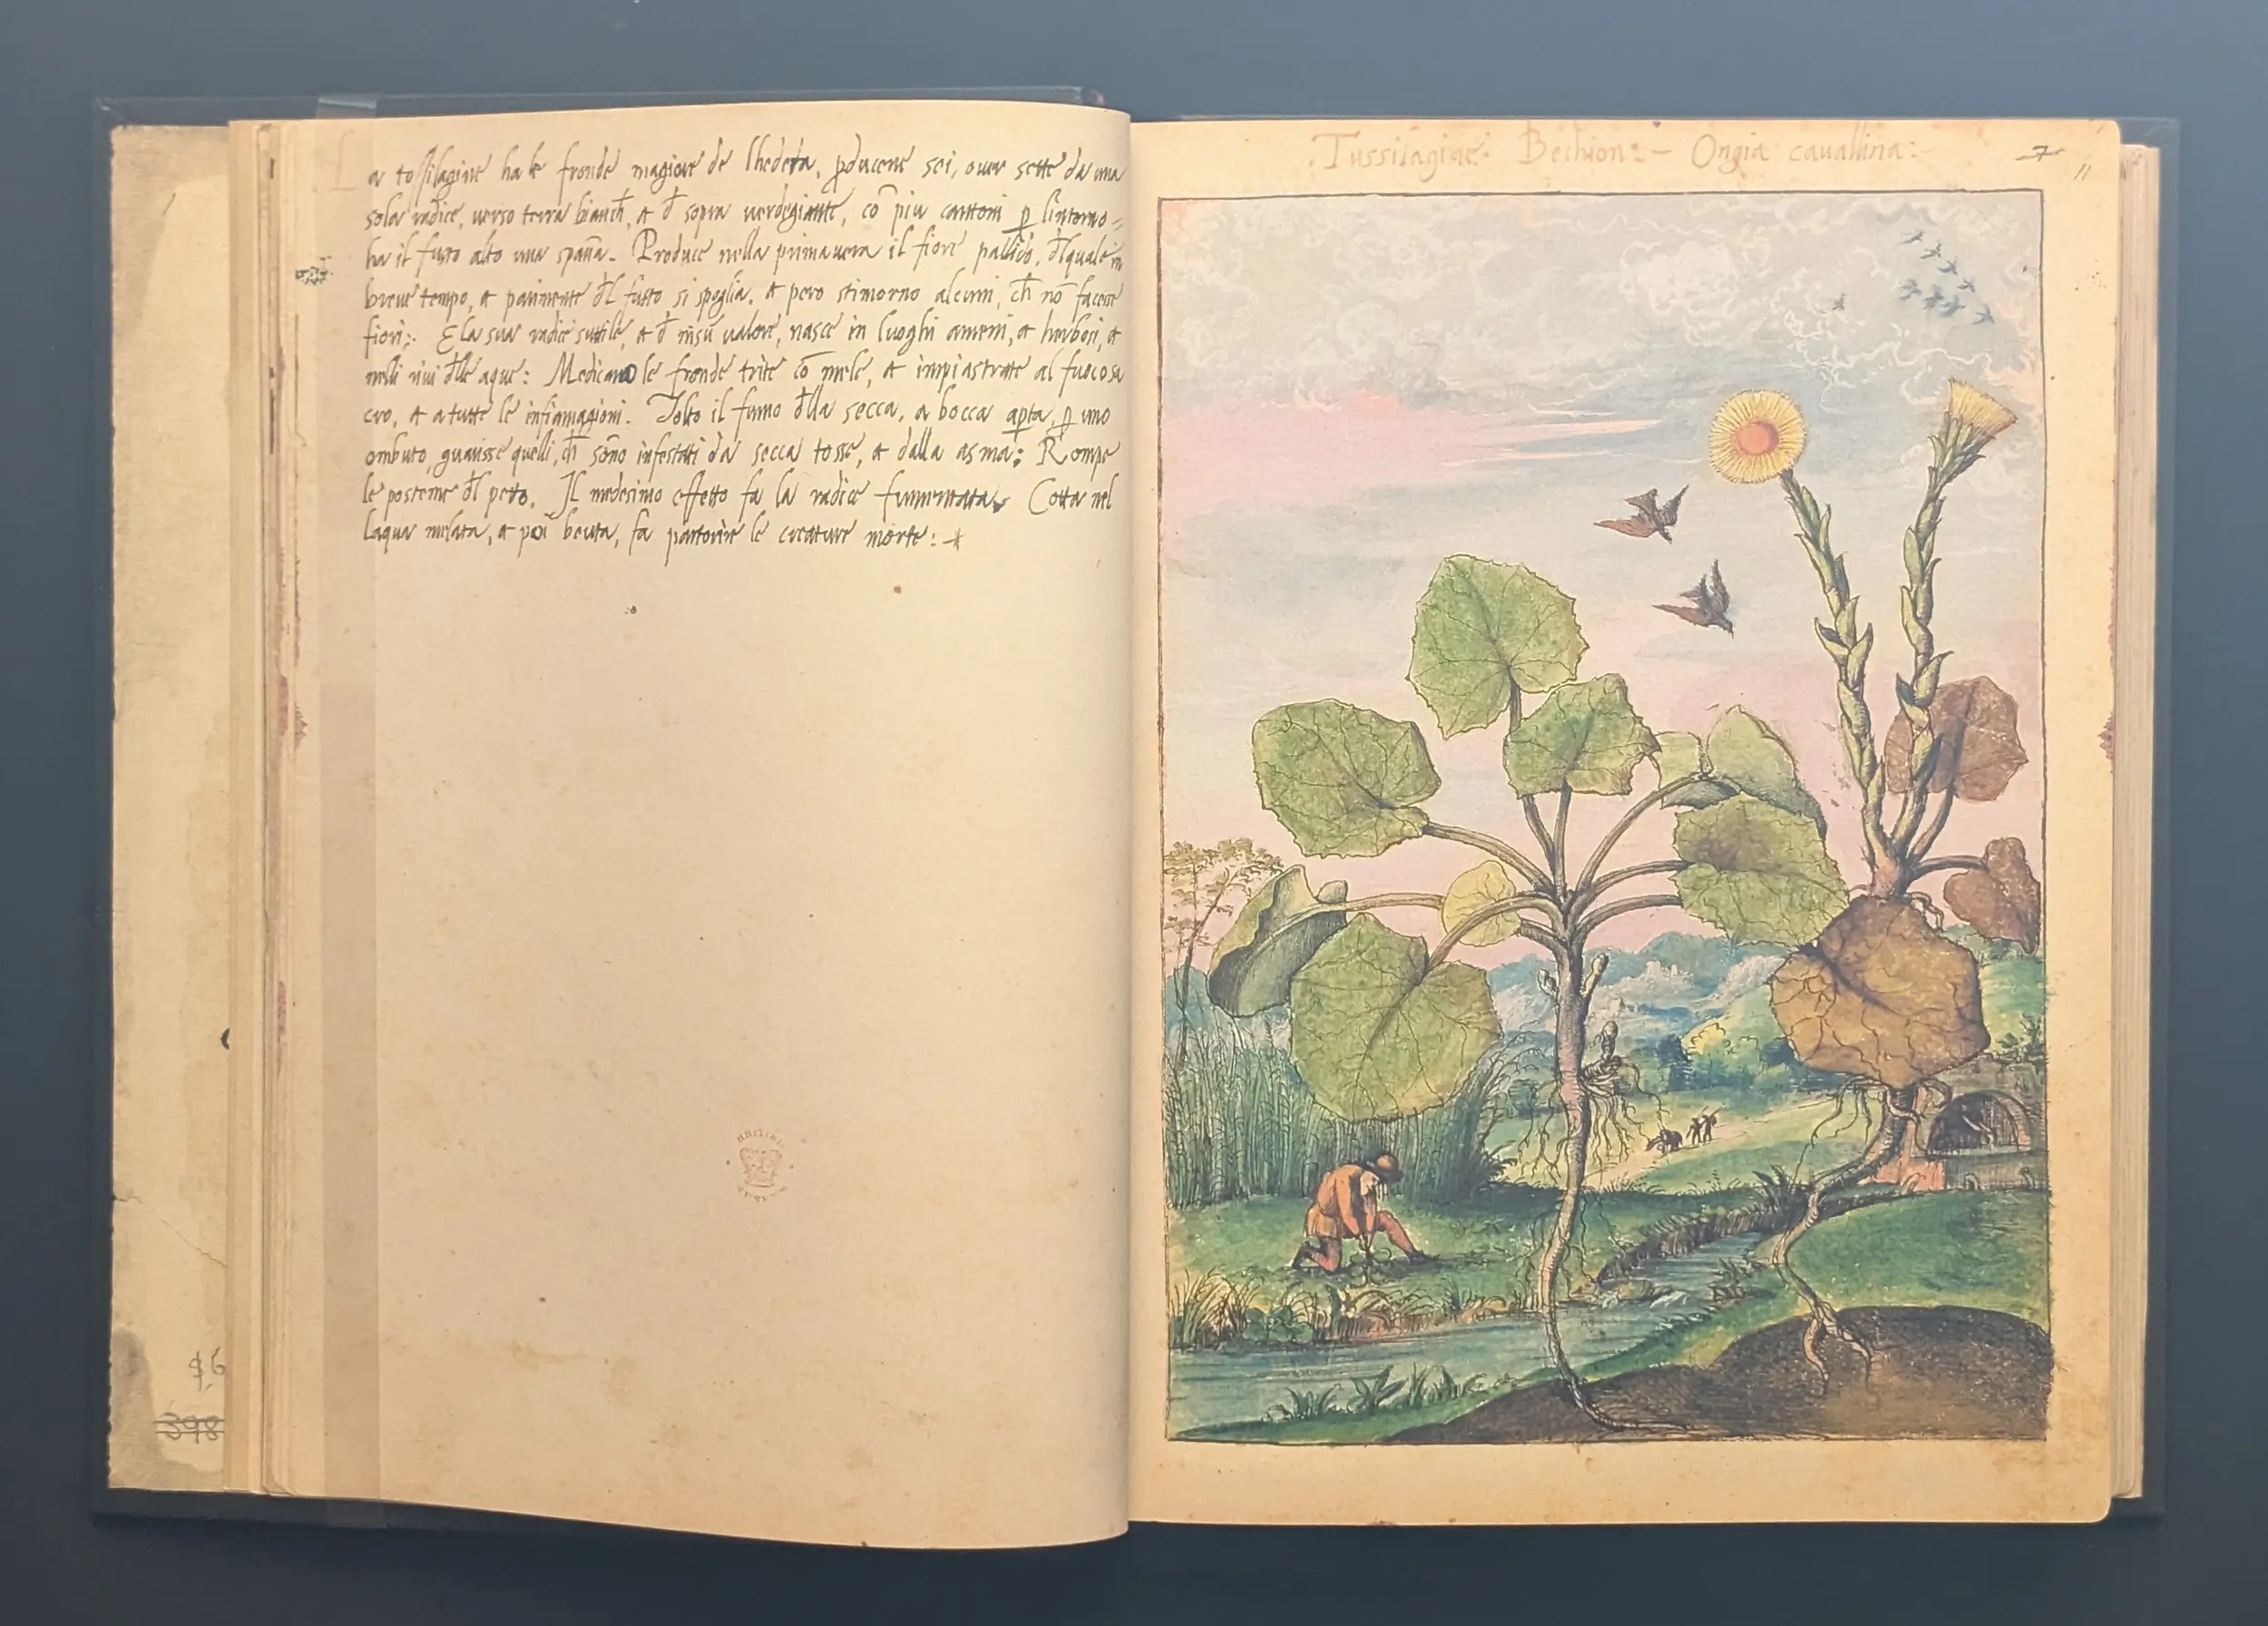 La tossilagine ha le fronde magiore de lhedera, ꝓducene sei, ouer sette da una
sola radice, uerso terra bianch̄, & d̄ sopra uerdegiante, cō piu cantoni ꝑ lintorno=
ha il fusto alto una spāna. Produce nella primauera il fiore pallido, d̄lquale in
breue tempo, & parimente d̄l fusto si spoglia. & pero stimorno alcuni, ch̄ nō facesse
fiori:. E la sua radice suttile, & d̄ nisū ualore, nasce in luoghi ameni, & herbosi, &
nelli riui d̄lle aque: Medicano le fronde trite cō mele, & impiastrate al fuoco sa
cro, & a tutte le infiamagioni. Tolto il fumo d̄lla secca, a bocca aꝑta, ꝑ uno
ombuto, guarisse quelli, ch̄ sōno infestati da secca tosse, & dalla asma: Rompe
le posteme d̄l petto. Il medesimo effetto fa la radice fumentata. Cotta nel
laqua melata, & poi beuta, fa partorire le creature morte:
$6
398
Tussilagine: Bechion: - Ongia cauallina:
7
11